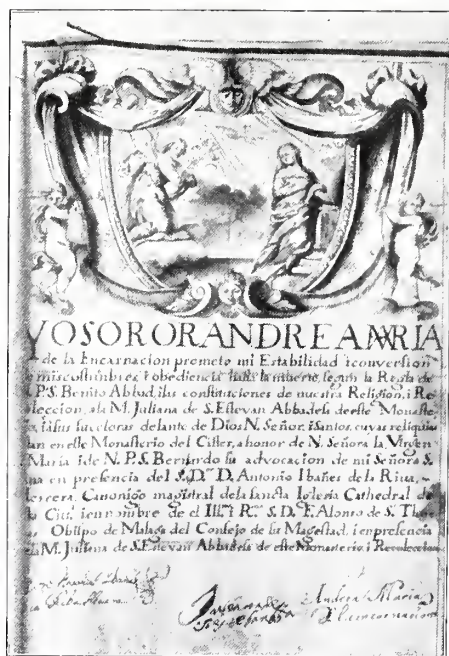 YO SOROR ANDREA MARIA
de la Encarnacion prometo mi Estabilidad i conversion
e mis costumbres i obediencia hasta la muerte, segun la Regla de
P.S. Benito Abbad, i las constituciones de nuestra Religion, i Re
leccion, a la M. Juliana de S. Estevan Abbadesa de este Monaste
i a sus succesoras delante de Dios N. Señor, i Santos, cuyas reliquias
tan en este Monasterio del Cister, a honor de N. Señora la Virgen
Maria i de N.P.S. Bernardo su advocacion de mi Señora S.
na en presencia del S.D.r D. Antonio Ibañes de la Riua,
ercera, Canonigo magistral de la sancta Iglesia Cathedral de
ta Ciu. i en nombre de el Ill.mo R.mo S. D. F. Alonso de S. Tho
as Obispo de Malaga del Consejo de su Magestad, i en presencia
la M. Juliana de S. Estevan Abbadesa de este Monasterio i Recoleccion
Andrea Maria
de la encarnacion